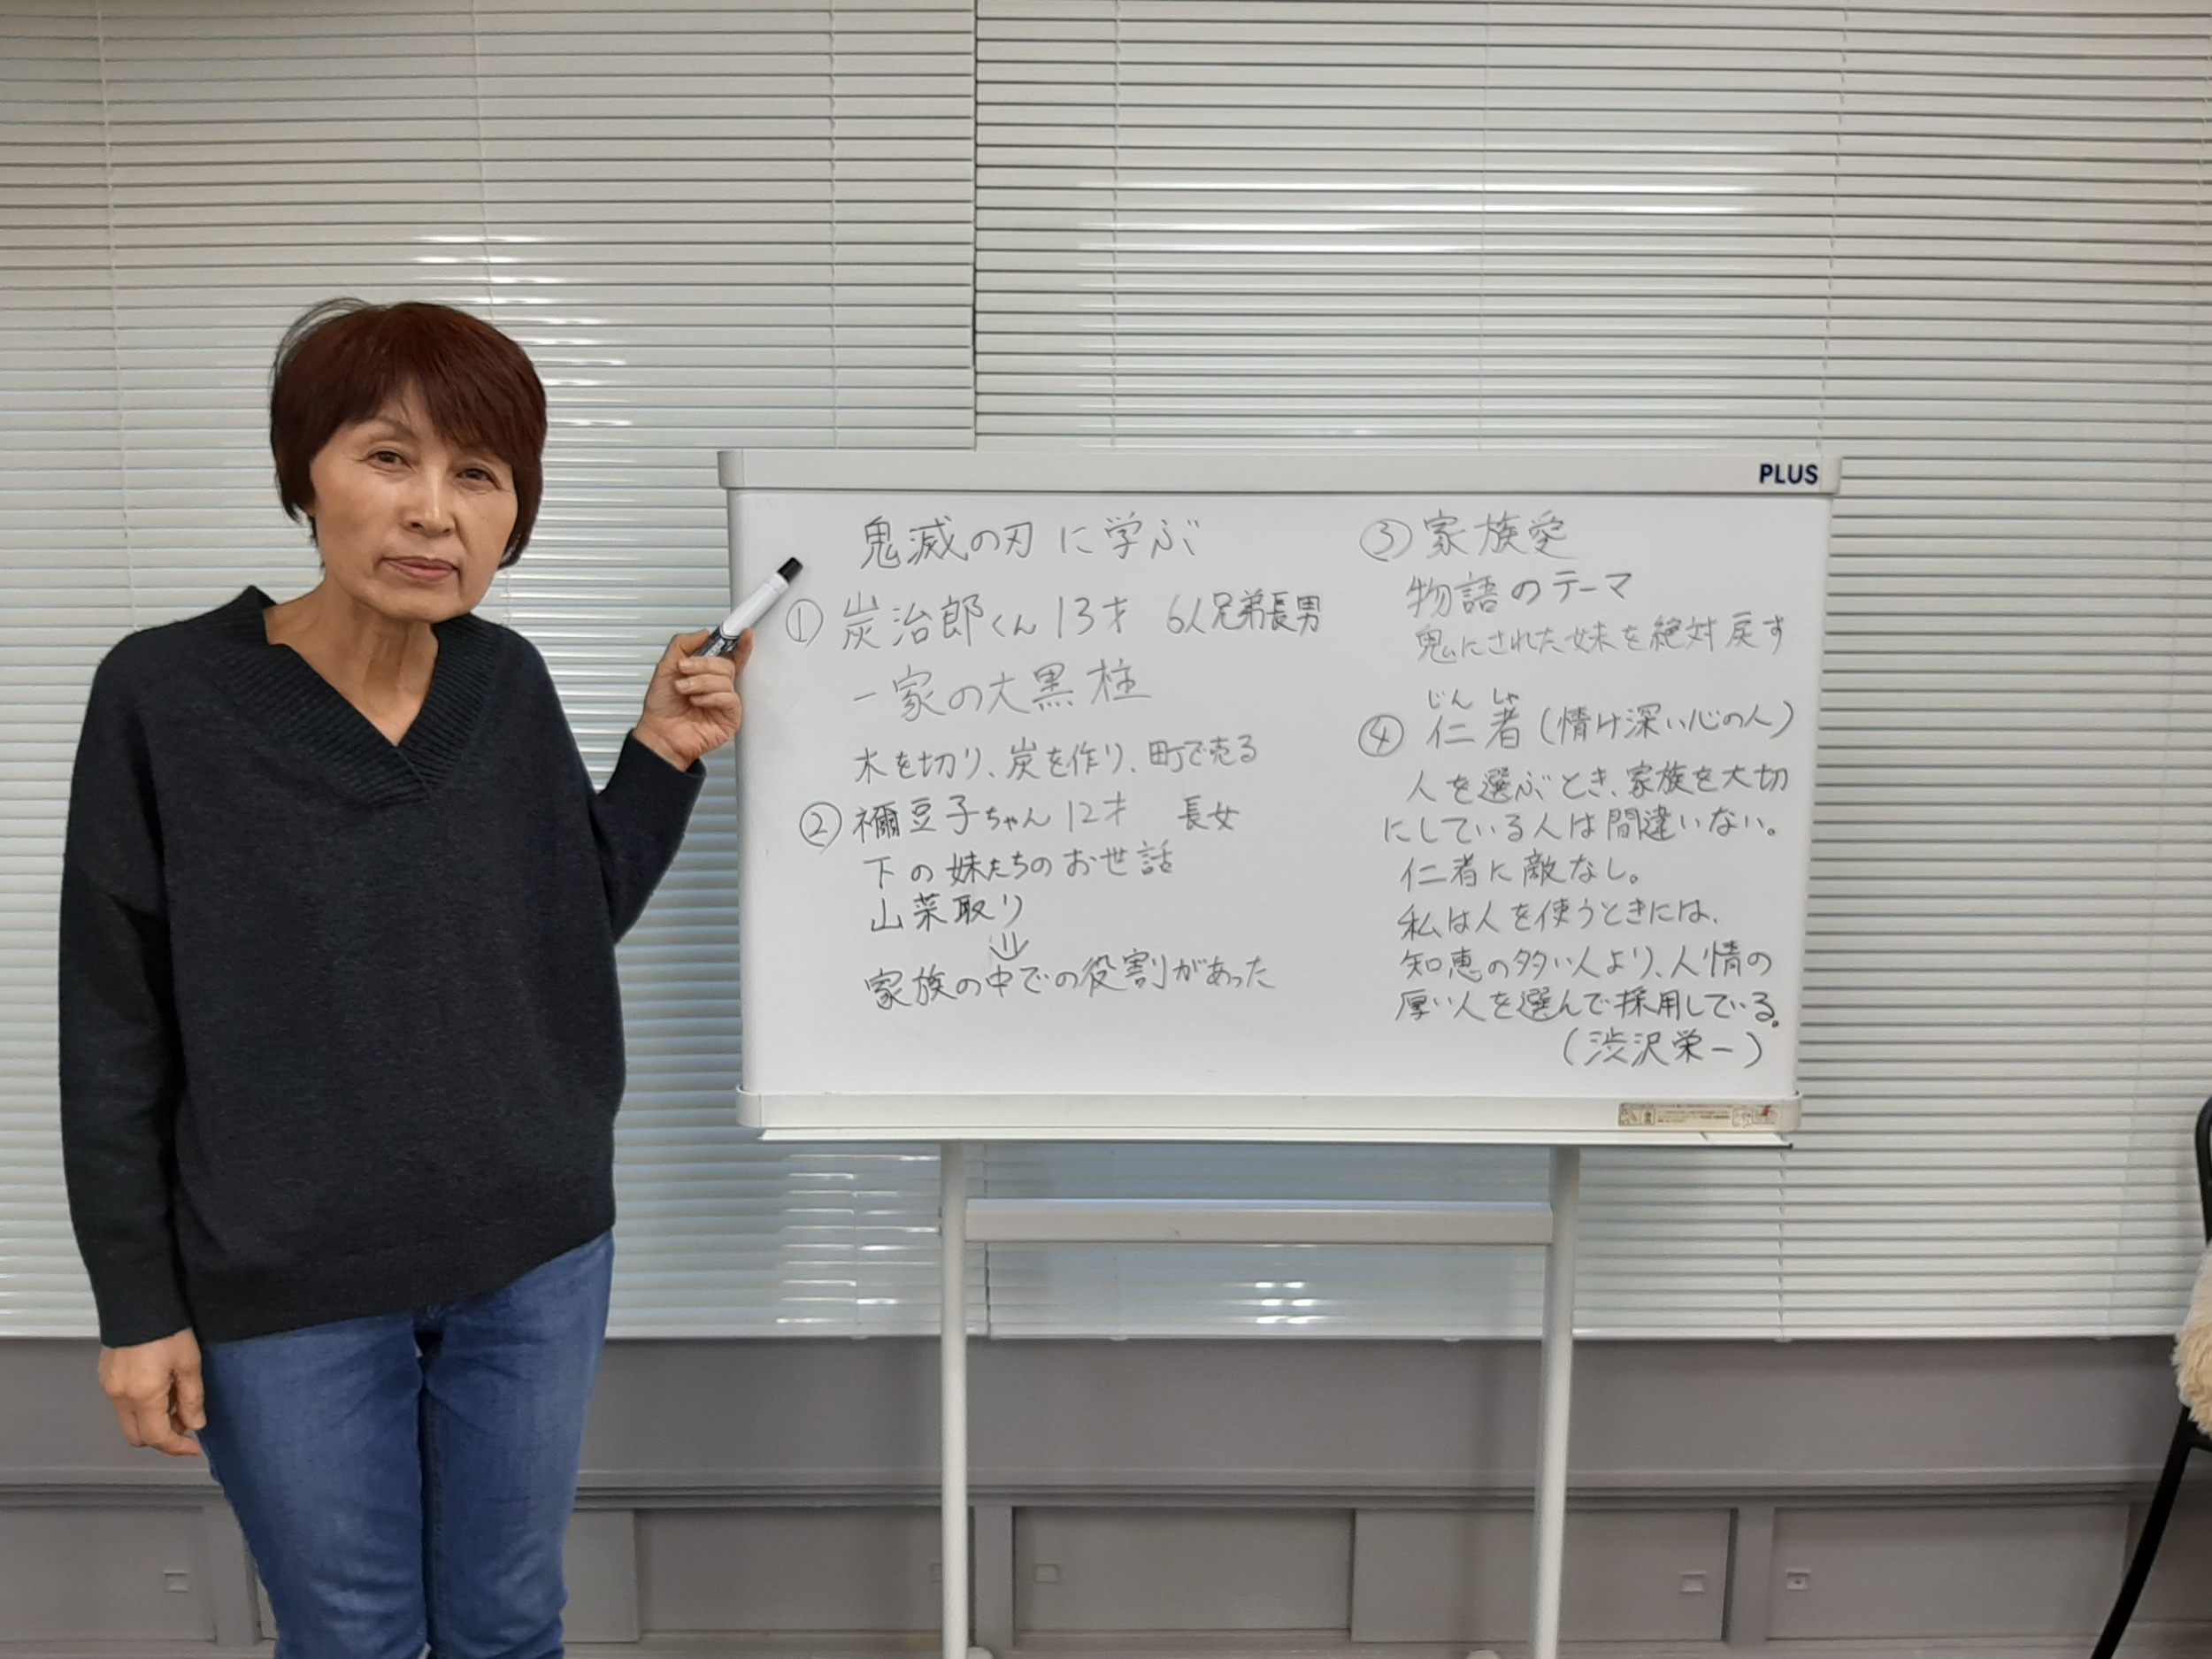 PLUS
鬼滅の刃に学ぶ
① 炭治郎くん 13才 6人兄弟長男
一家の大黒柱
木を切り、炭を作り、町で売る
② 禰豆子ちゃん 12才 長女
下の妹たちのお世話
山菜取り
⇓
家族の中での役割があった
③ 家族愛
物語のテーマ
鬼にされた妹を絶対戻す
じん しゃ
④ 仁者(情け深い心の人)
人を選ぶとき、家族を大切
にしている人は間違いない。
仁者に敵なし。
私は人を使うときには、
知恵の多い人より、人情の
厚い人を選んで採用している。
(渋沢栄一)